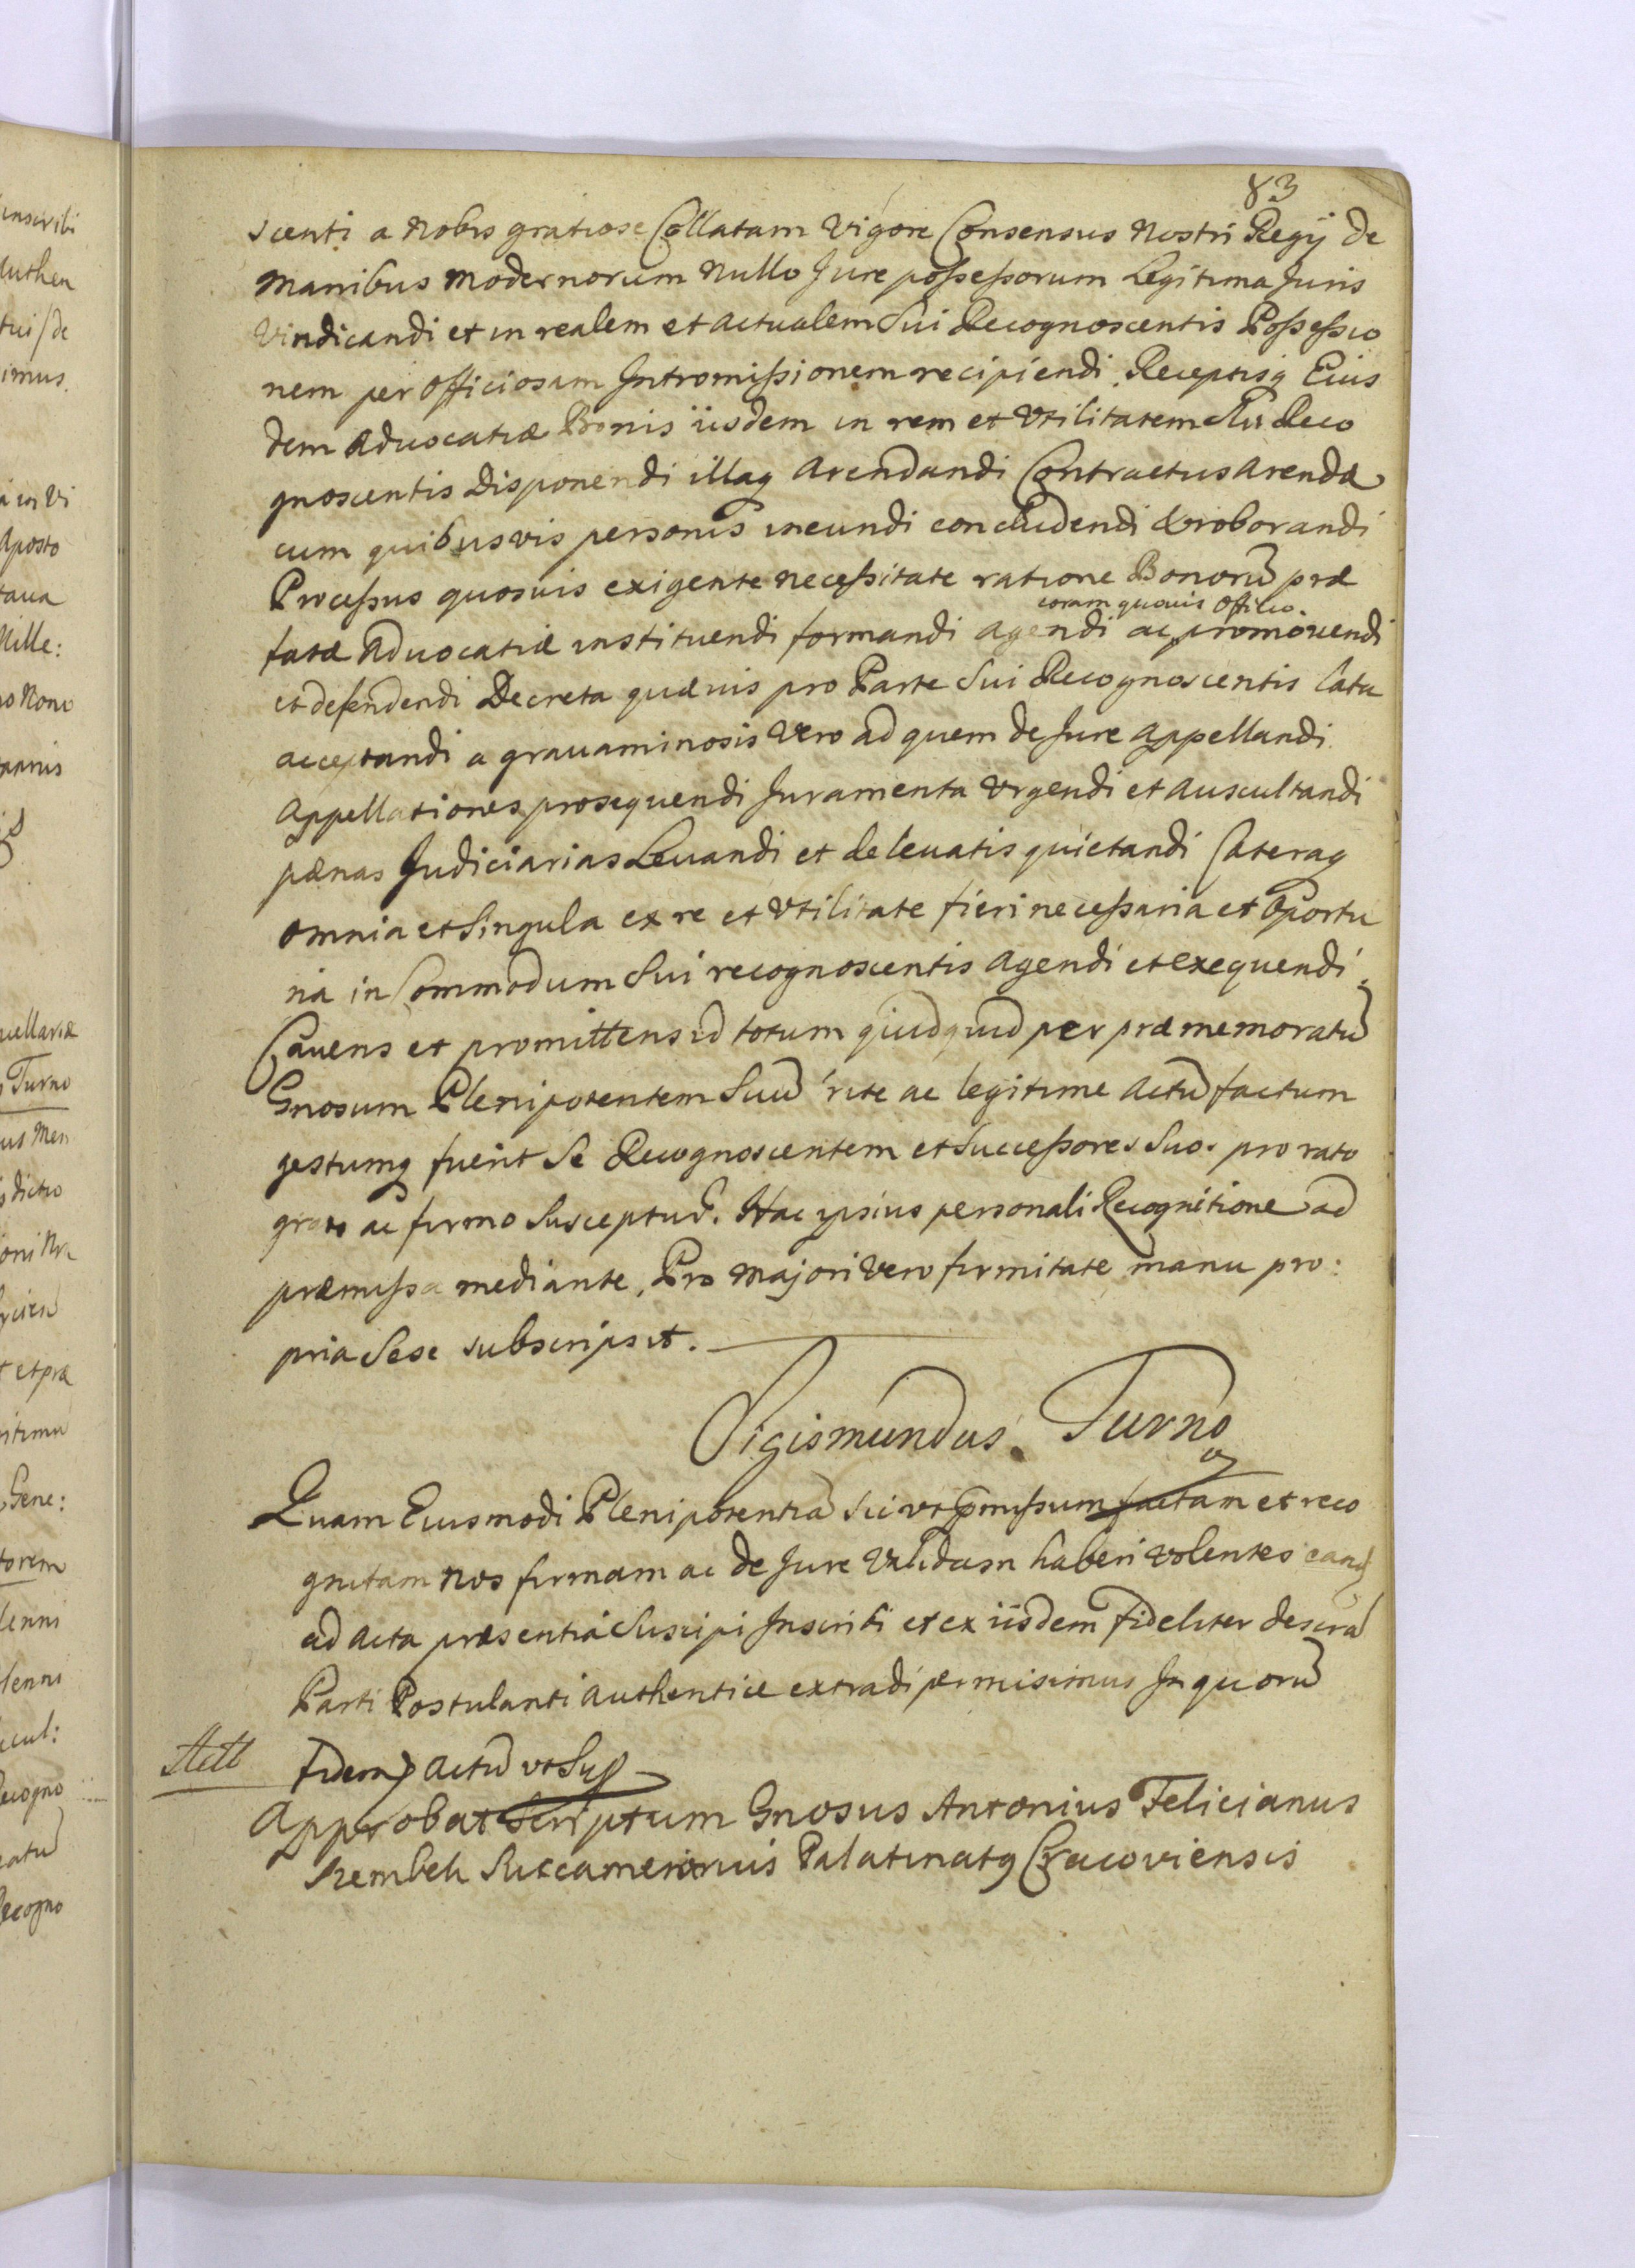 83
scenti a Nobis gratiose Collatam Vigore Consensus Nostri Regij de
Manibus Modernorum Nullo Jure possessorum Legitima Juris
Vindicandi et in realem et actualem Sui Recognoscentis Possessio
nem per Officiosam Intromissionem recipiendi. Receptisq Eius
dem Aduocatiæ Bonis iisdem in rem et Vtilitatem Sui Reco
gnoscentis Disponendi illaq Arendandi Contractus Arendæ
cum quibusvis personis ineundi concludendi & roborandi
Processus quosuis exigente necessitate ratione Bonorū præ
coram quouis Officio.
fatæ Aduocatiæ instituendi formandi agendi ac promouendi
et defendendi Decreta quæuis pro Parte Sui Recognoscentis lata
acceptandi a grauaminosis Vero ad quem de Jure Appellandi
Appellationes prosequendi Juramenta Vrgendi et Auscultandi
pænas Judiciarias Leuandi et de leuatis quietandi Cæteraq
Omnia et Singula ex re et Vtilitate fieri necessaria et Oportu
na in Commodum Sui recognoscentis Agendi et exequendi.
Cauens et promittens id totum quidquid per præmemoratū
Gnosum Plenipotentem Suū rite ac legitime Actū factum
gestumq fuerit Se Recognoscentem et Successores Suos pro rato
grato ac firmo Susceptur. Hac ipsius personali Recognitione ad
præmissa mediante, Pro Majori Vero firmitate manu pro:
pria Sese subscripsit.
Sigismundus. Turno
Quam Eiusmodi Plenipotentiā Sic vt præmissum factam et reco
gnitam Nos firmam ac de Jure Validam haberi Volentes eamq
ad Acta præsentia Suscipi Inscribi et ex iisdem fideliter
Parti Postulanti Authentice extradi permisimus In quorū
Fidem Actū vt Sup
Approbat Scriptum Gnosus Antonius Felicianus
Rembek Succamerarius Palatinatq Cracoviensis